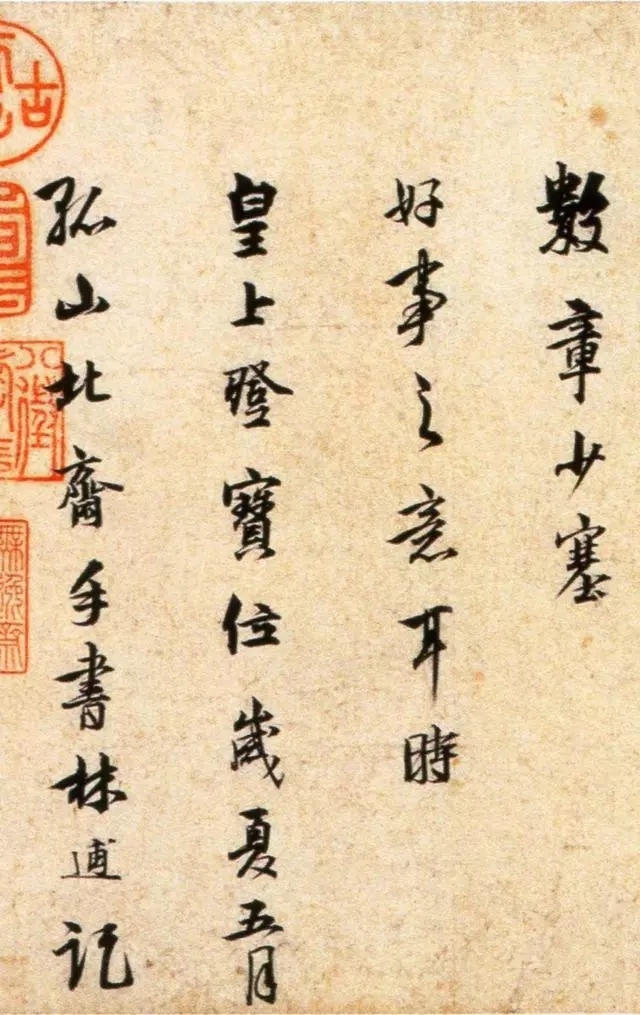 數章少塞
好事之意耳時
皇上登寶位歲夏五月
孤山北齋手書林逋記
古
無逸齋